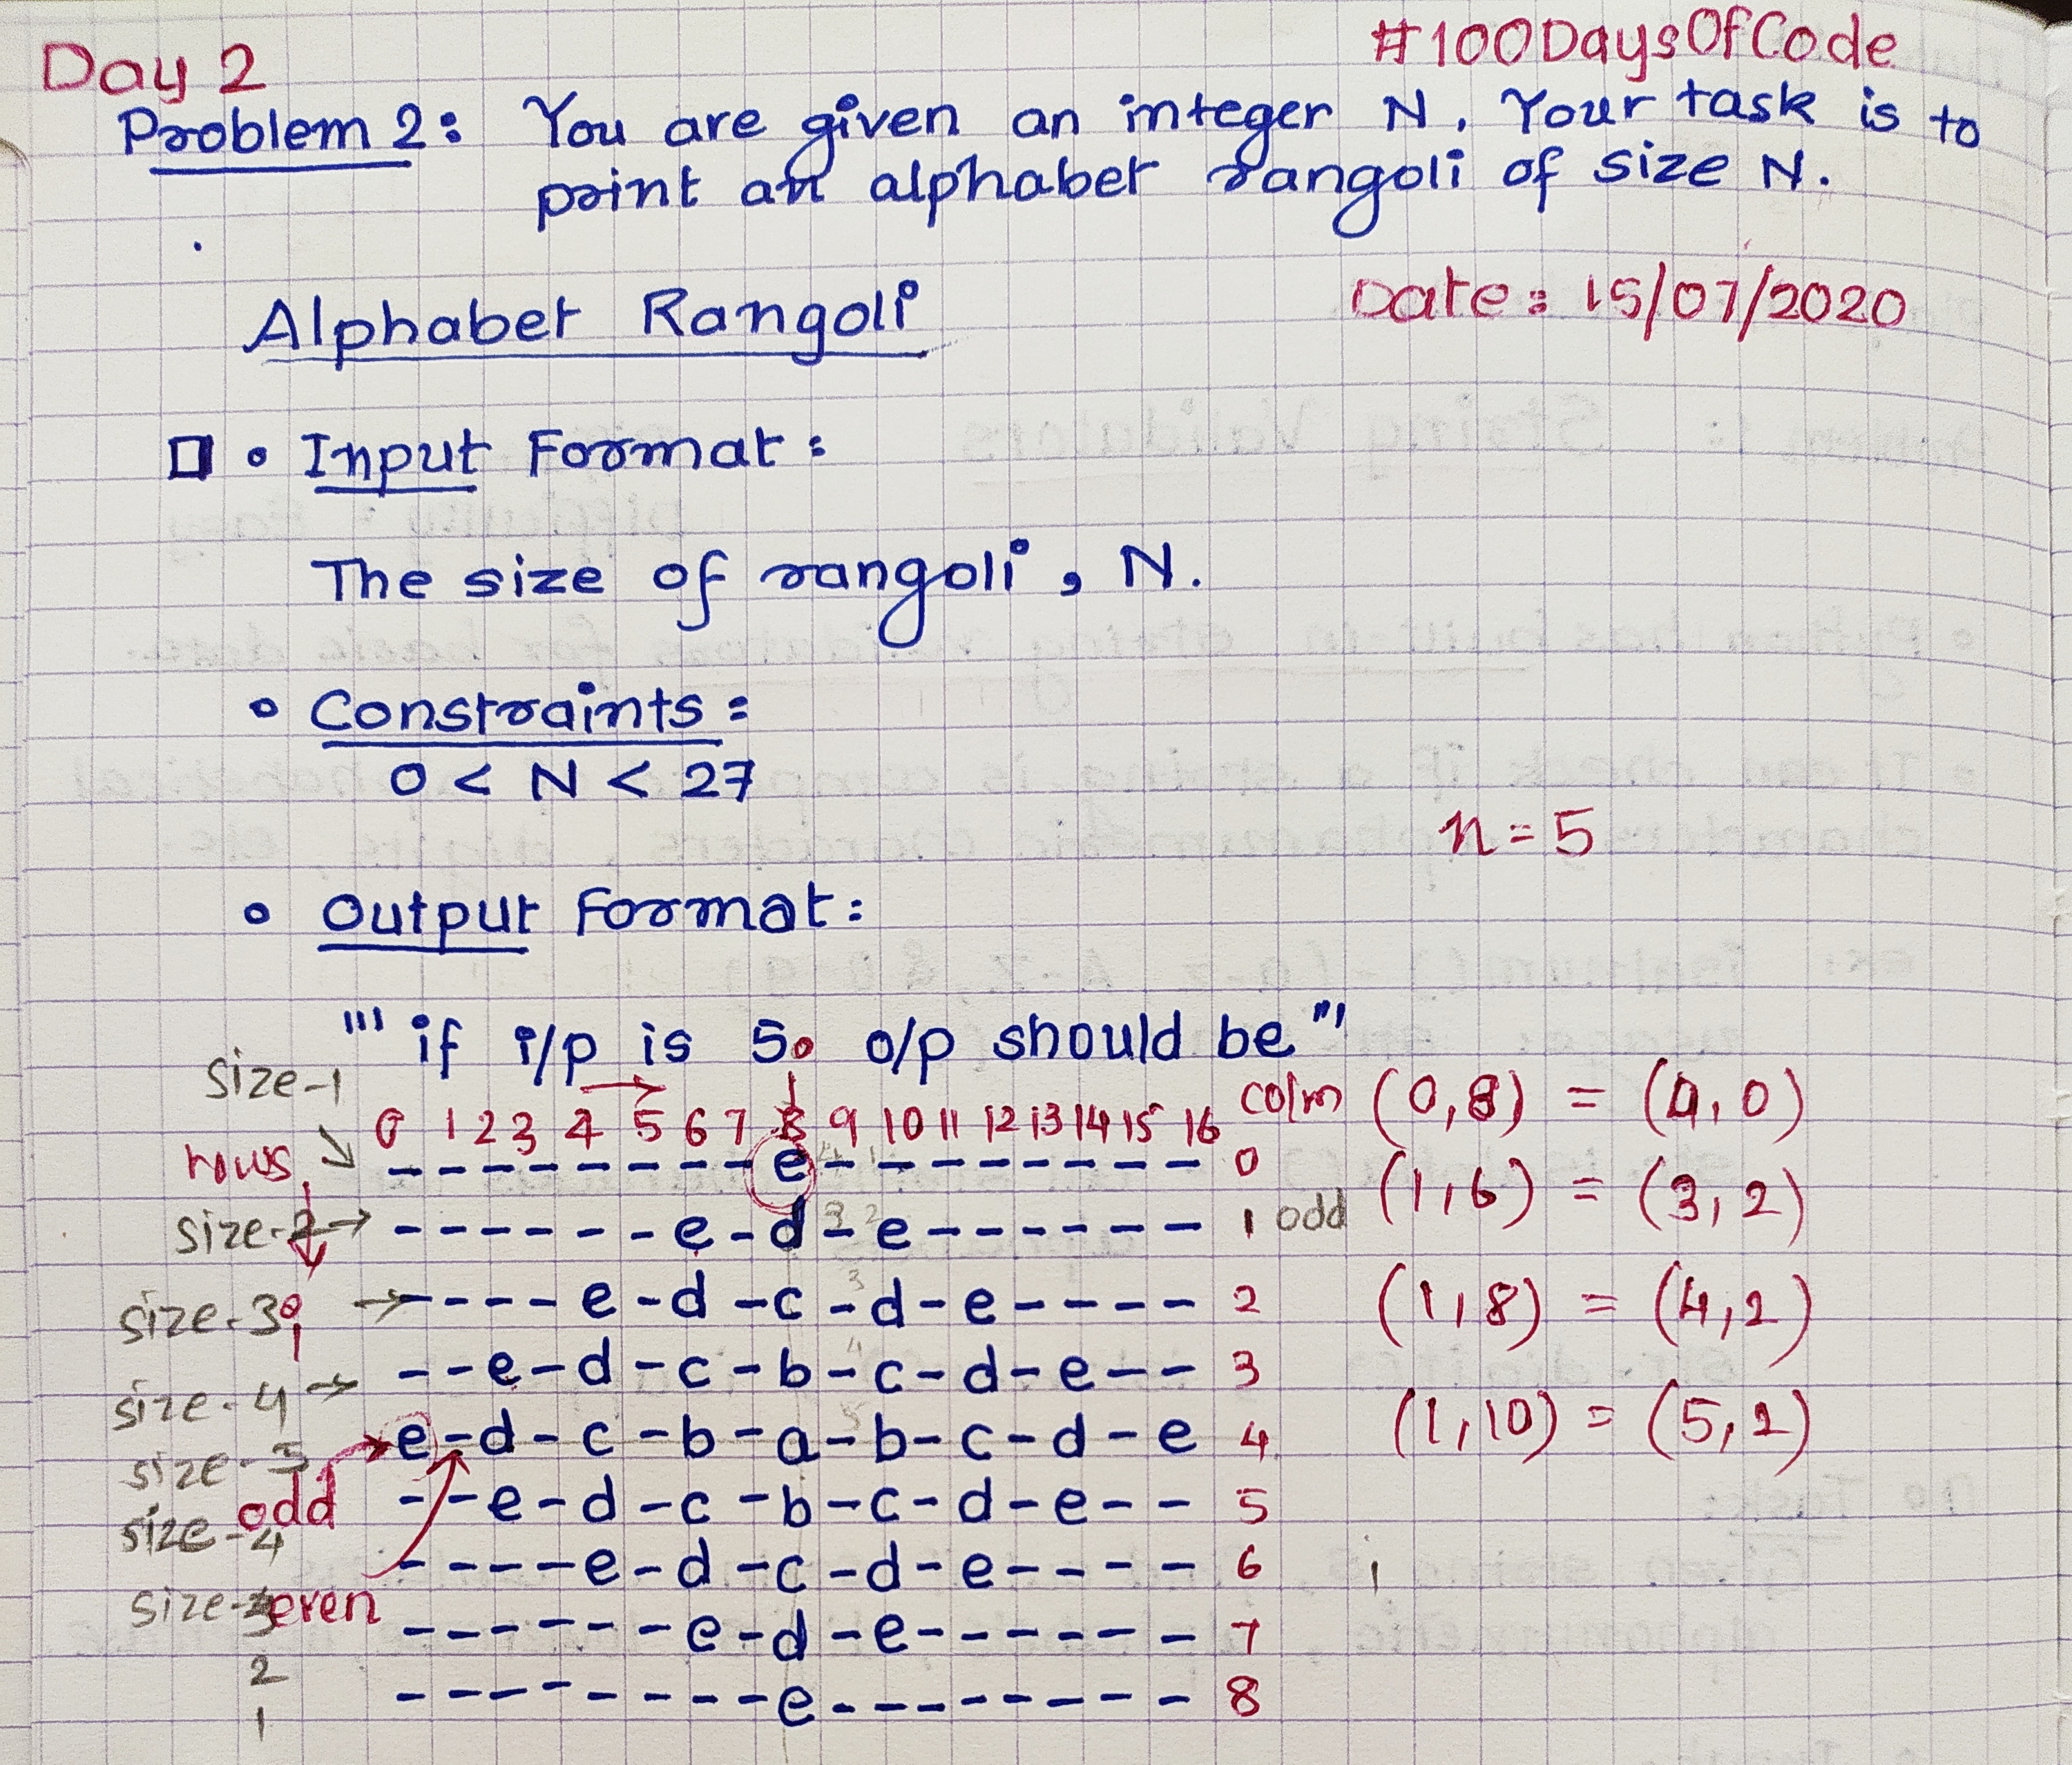 Day 2 #100DaysOfCode
Problem 2: You are given an integer N. Your task is to
print an alphabet rangoli of size N.
Alphabet Rangoli Date: 15/07/2020
• Input Format:
The size of rangoli, N.
• Constraints:
0 < N < 27
n = 5
• Output Format:
"' if i/p is 5. o/p should be "'
size-1
0 1 2 3 4 5 6 7 8 9 10 11 12 13 14 15 16 colm (0,8) = (4,0)
rows --------e-------- 0
(1,6) = (3,2)
size-2 → ------e-d-e------ 1 odd
size-3 → ----e-d-c-d-e---- 2 (1,8) = (4,2)
size-4 → --e-d-c-b-c-d-e-- 3
size-5 e-d-c-b-a-b-c-d-e 4 (1,10) = (5,2)
odd
size-4 --e-d-c-b-c-d-e-- 5
----e-d-c-d-e---- 6 1
size-3 even
------e-d-e------ 7
2
--------e-------- 8
1